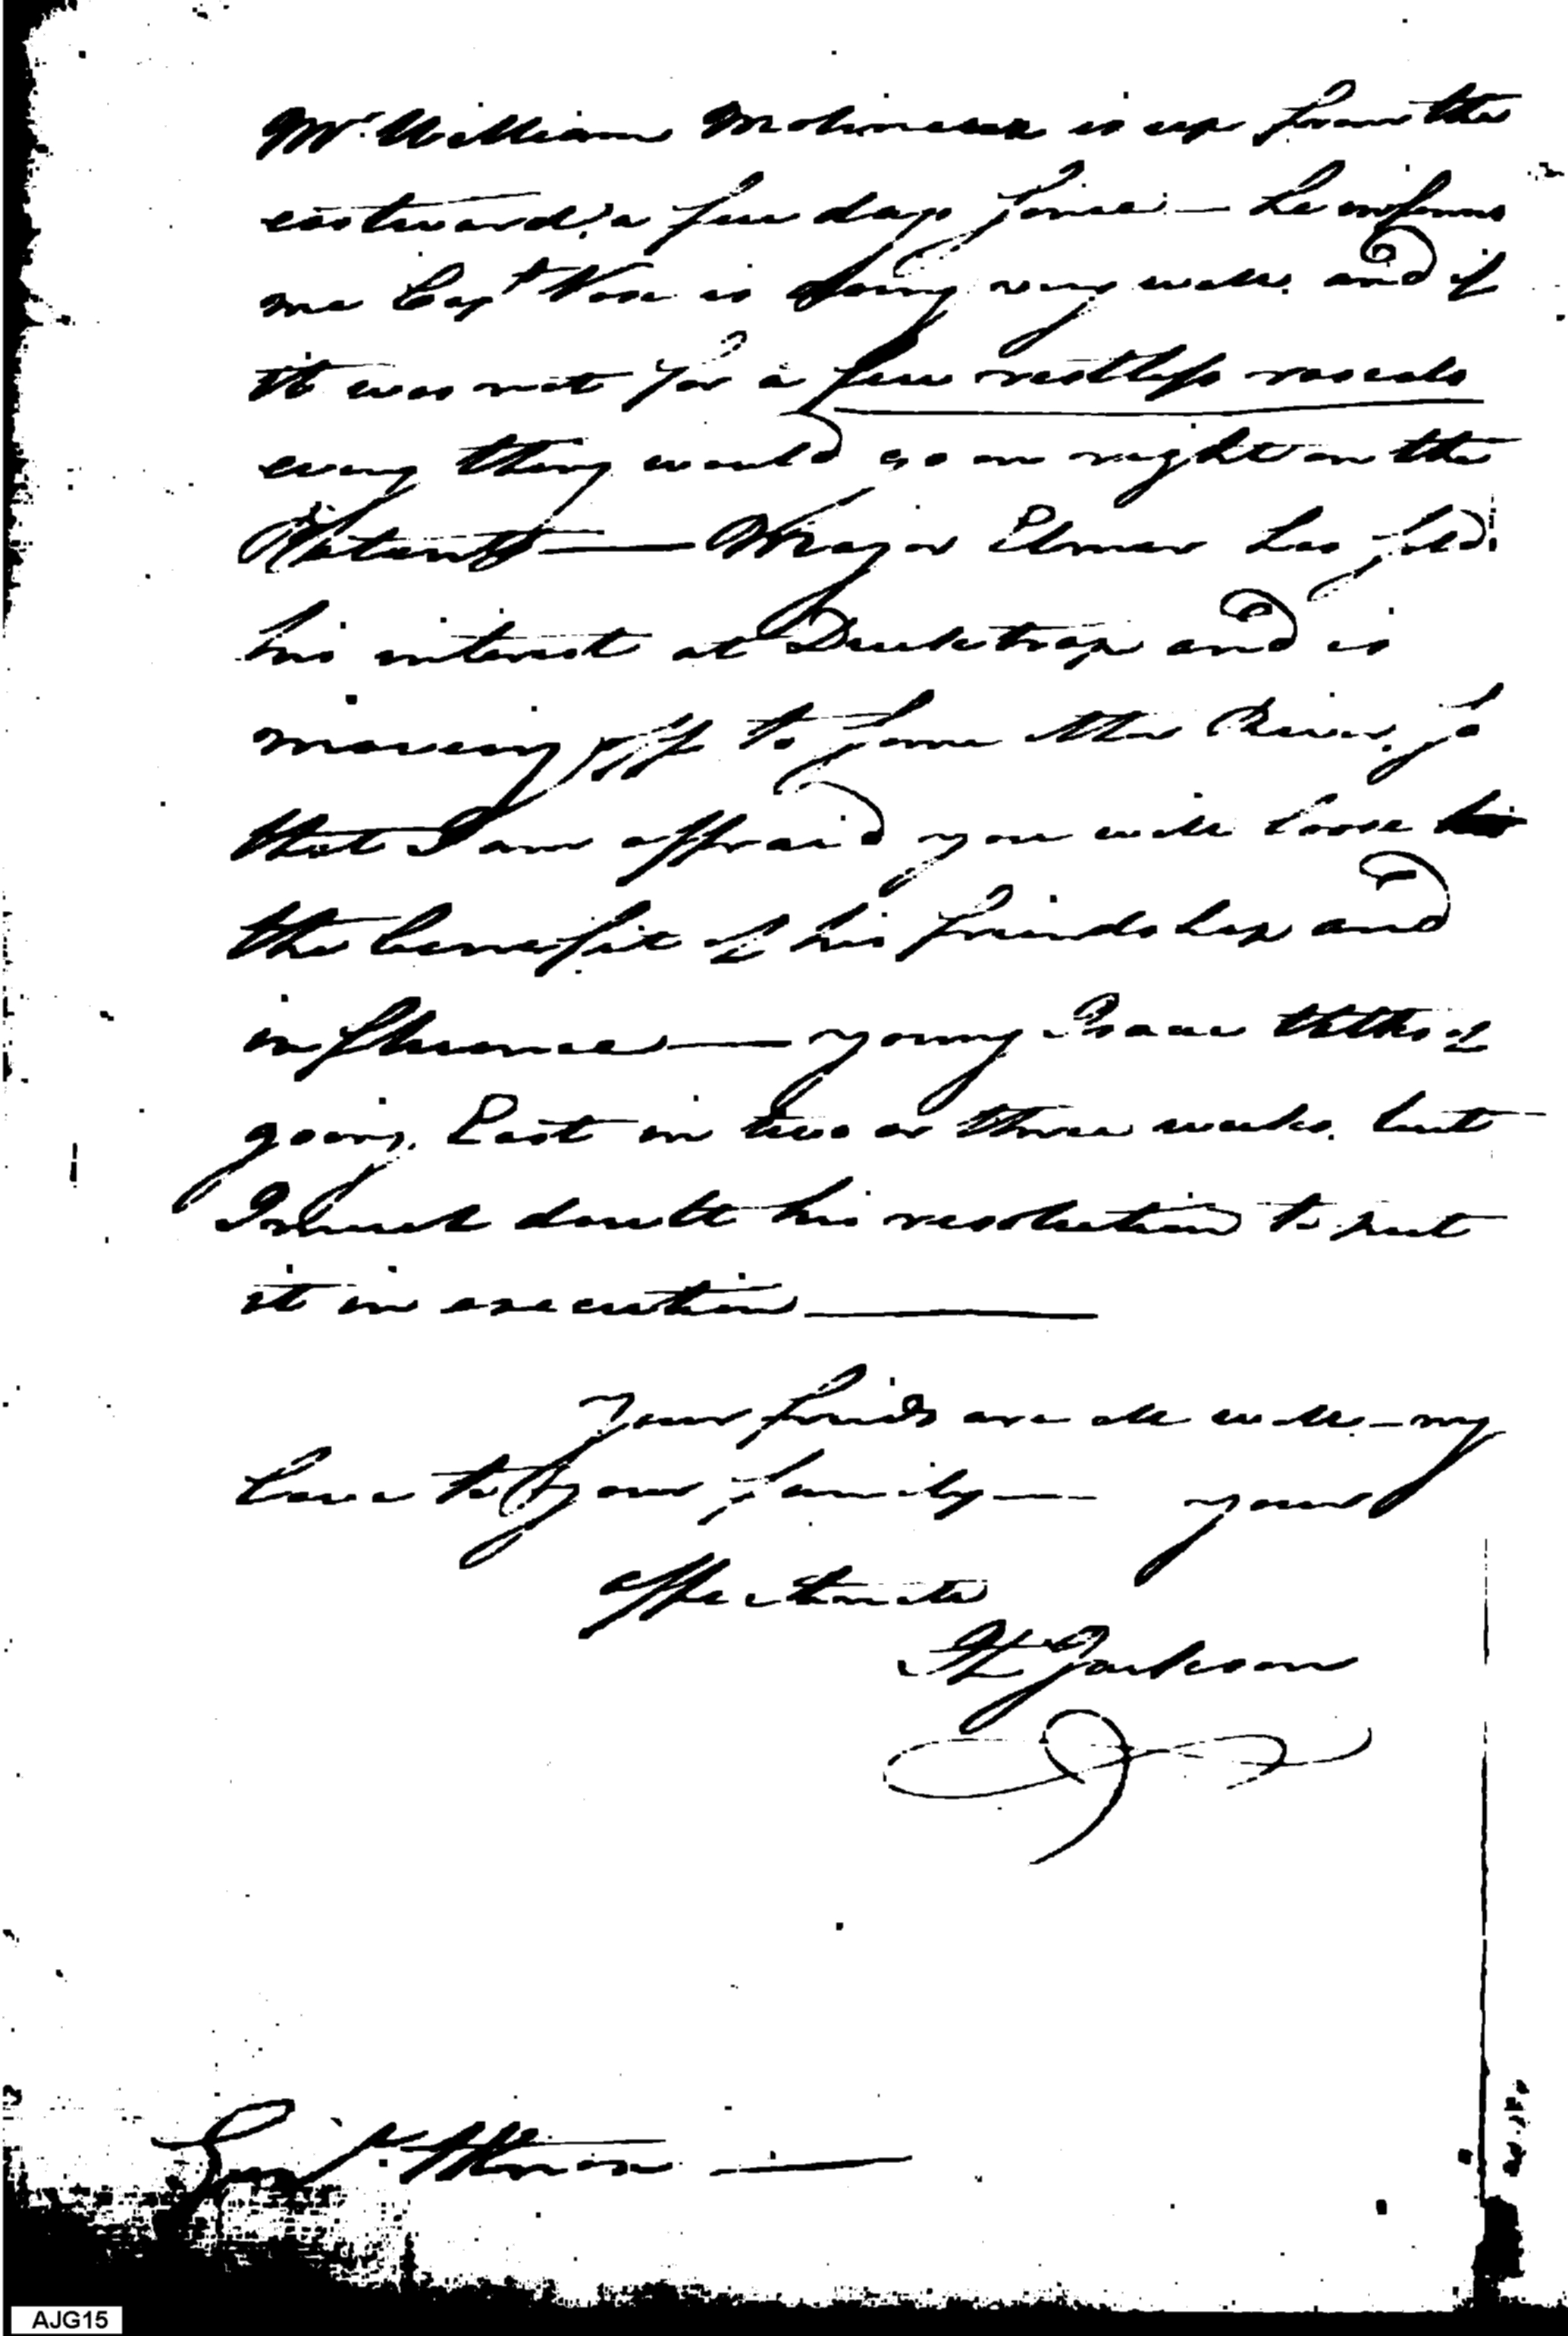 Mr. William Molineux is up from the
eastward, a few days since — he informs
me Capt Vose is doing very well. and if
it was not for a few restless rascals
every thing would go on right on the
Patent — Major Ulmer has sold
his interest at Ducktrap and is
moving off to some other River, so
that I am affraid you will loose
the benefit of his friendship and
influence — young Isaac
going East in two or three weeks. but
I much doubt his resolution to put
it in execution —
Your friends are all well — my
love to your family — your
affectionate
H Jackson
Genl. Knox —
AJG15